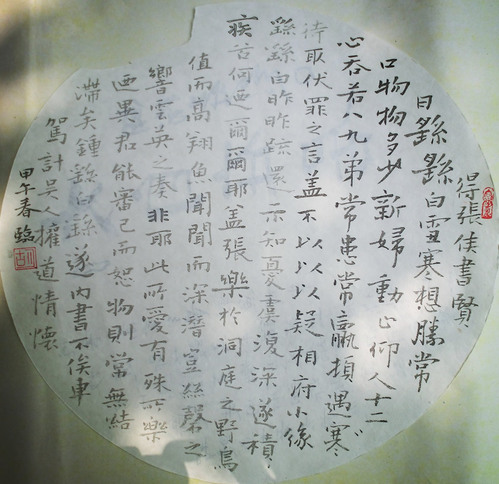 得張侯書賢
日繇繇白雪寒想勝常
口物物多少新婦動止仰人十二
心吞若八九弟常患常羸頓遇寒
待取伏罪之言盖不以以以疑相府小緣
繇繇白昨昨疏還示知憂虞復深遂積
疾苦何迺爾爾耶盖張樂於洞庭之野鳥
值而高翔魚聞聞而深潛豈絲磬之
響雲英之奏非耶此所愛有殊所樂
迺異君能審己而恕物則常無結
滯矣鍾繇白繇遂內書不俟車
駕計吴人權道情懷
甲午春臨